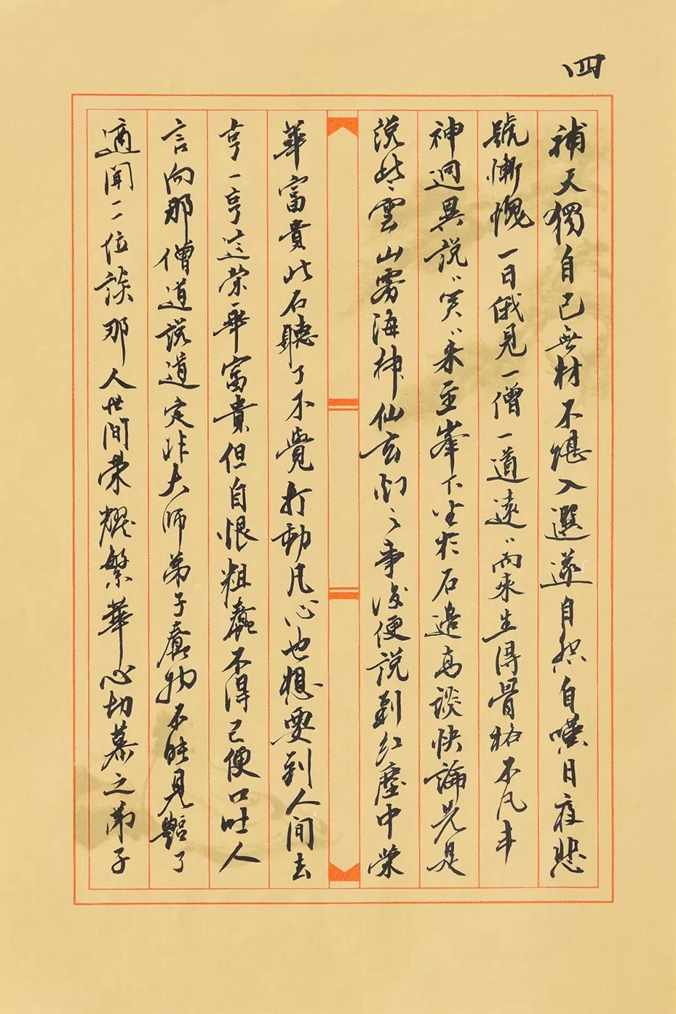 四
補天獨自己無材不堪入選遂自怨自嘆日夜悲
號慚愧一日俄見一僧一道遠〻而來生得骨格不凡丰
神迥異說〻笑〻來至峯下坐於石邊高談快論先是
說些雲山霧海神仙玄幻之事後便說到紅塵中榮
華富貴此石聽了不覺打動凡心也想要到人間去
享一享這榮華富貴但自恨粗蠢不得已便口吐人
言向那僧道說道定非大師弟子蠢物不能見豊了
適聞二位談那人世間榮耀繁華心切慕之弟子